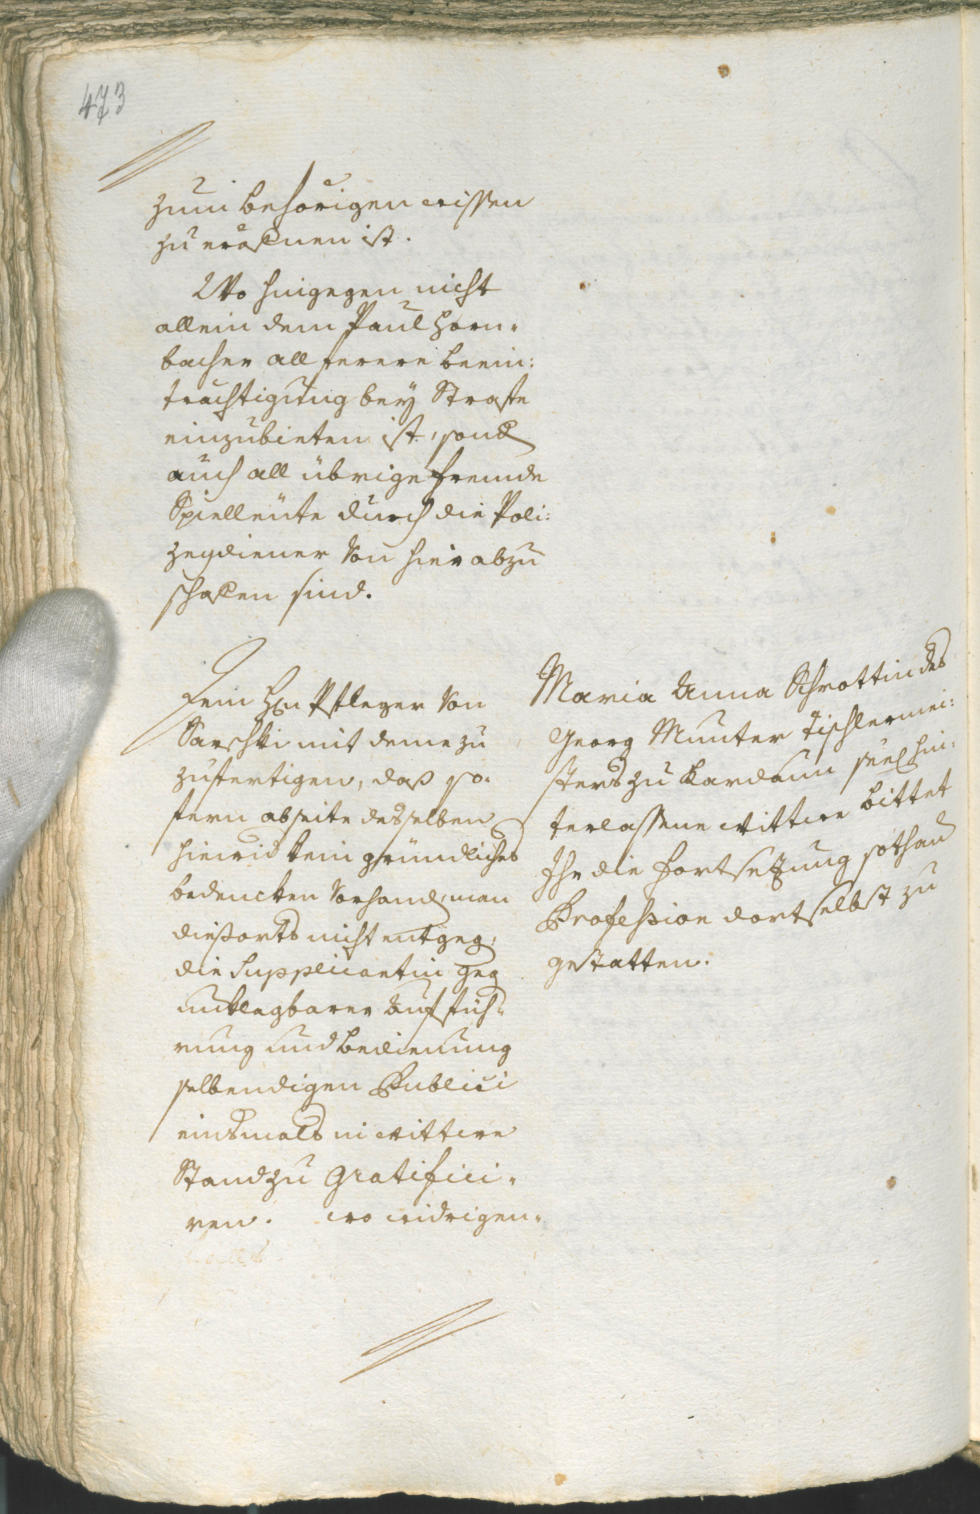 473
zum behörigen wissen
zu eröfnen ist.
Wo hingegen nicht
allein dem Paul Horn-
bacher all ferere beein:
trächtigung bey Straffe
einzubieten ist, sond
auch all übrige fremde
Spielleüte durch die Poli:
zeydiener von hier abzu
schafen sind.
Dem Hn Pfleger von
mit deme zu
zufertigen, daß so-
fern abseite desselben
hierwid kein gründliches
bedencken vorhand, man
diesorts nicht entgeg,
die Supplicantin geg
unklagbarer Auffüh-
rung und bedienung
selbendigen Publici
einsmals in wittwe
Stand zu gratifici-
ren. wo widrigen-
Maria Anna Schrottin des
Georg Munter Tischlermei:
sters zu Kardaun seel: hin-
terlassene wittwe bittet
Ihr die fortsetzung sothan
Profession dortselbst zu
gestatten.